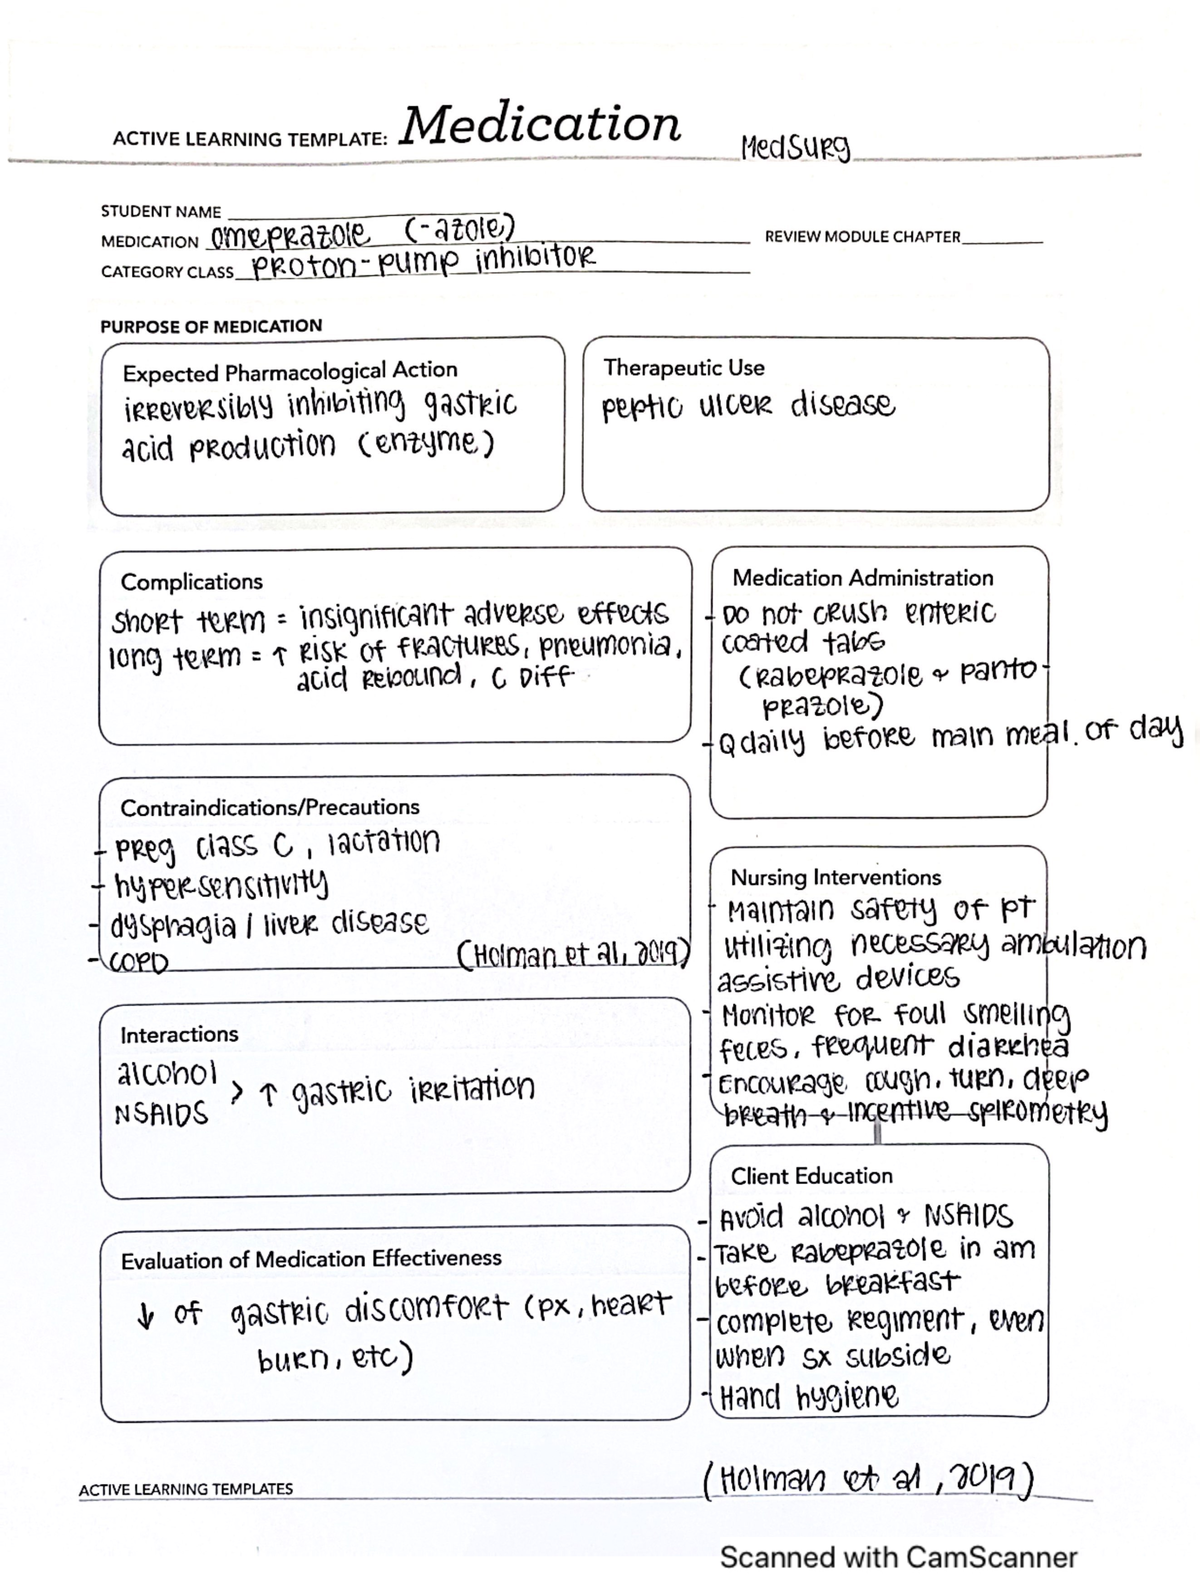 ACTIVE LEARNING TEMPLATE: Medication MedSurg
STUDENT NAME
MEDICATION omeprazole (-azole)
REVIEW MODULE CHAPTER
CATEGORY CLASS proton-pump inhibitor
PURPOSE OF MEDICATION
Expected Pharmacological Action
irreversibly inhibiting gastric
acid production (enzyme)
Therapeutic Use
peptic ulcer disease
Complications
short term = insignificant adverse effects
long term = ↑ risk of fractures, pneumonia,
acid rebound, C Diff
Medication Administration
- Do not crush enteric
coated tabs
(rabeprazole & panto-
prazole)
- Qdaily before main meal of day
Contraindications/Precautions
- preg class C, lactation
- hypersensitivity
- dysphagia / liver disease
- COPD (Holman et al, 2019)
Nursing Interventions
- Maintain safety of pt
utilizing necessary ambulation
assistive devices
- Monitor for foul smelling
feces, frequent diarrhea
- Encourage cough, turn, deep
breath & incentive spirometry
Interactions
alcohol
NSAIDS > ↑ gastric irritation
Client Education
- Avoid alcohol & NSAIDS
- Take rabeprazole in am
before breakfast
- complete regiment, even
when sx subside
- Hand hygiene
Evaluation of Medication Effectiveness
↓ of gastric discomfort (px, heart
burn, etc)
ACTIVE LEARNING TEMPLATES
(Holman et al, 2019)
Scanned with CamScanner